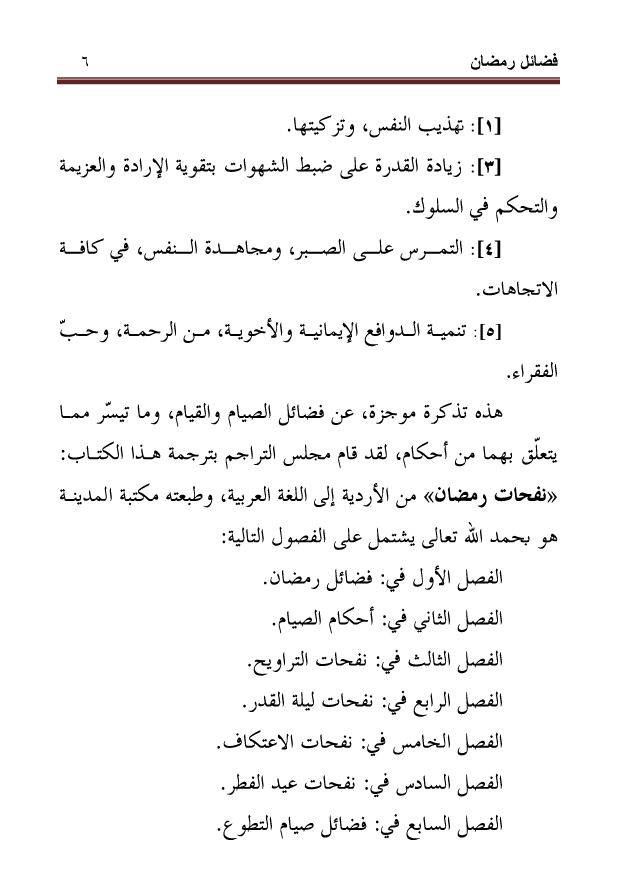 فضائل رمضان ٦
[١]: تهذيب النفس، وتزكيتها.
[٣]: زيادة القدرة على ضبط الشهوات بتقوية الإرادة والعزيمة
والتحكم في السلوك.
[٤]: التمرس على الصبر، ومجاهدة النفس، في كافة
الاتجاهات.
[٥]: تنمية الدوافع الإيمانية والأخوية، من الرحمة، وحبّ
الفقراء.
هذه تذكرة موجزة، عن فضائل الصيام والقيام، وما تيسّر مما
يتعلّق بهما من أحكام، لقد قام مجلس التراجم بترجمة هذا الكتاب:
«نفحات رمضان» من الأردية إلى اللغة العربية، وطبعته مكتبة المدينة
هو بحمد الله تعالى يشتمل على الفصول التالية:
الفصل الأول في: فضائل رمضان.
الفصل الثاني في: أحكام الصيام.
الفصل الثالث في: نفحات التراويح.
الفصل الرابع في: نفحات ليلة القدر.
الفصل الخامس في: نفحات الاعتكاف.
الفصل السادس في: نفحات عيد الفطر.
الفصل السابع في: فضائل صيام التطوع.